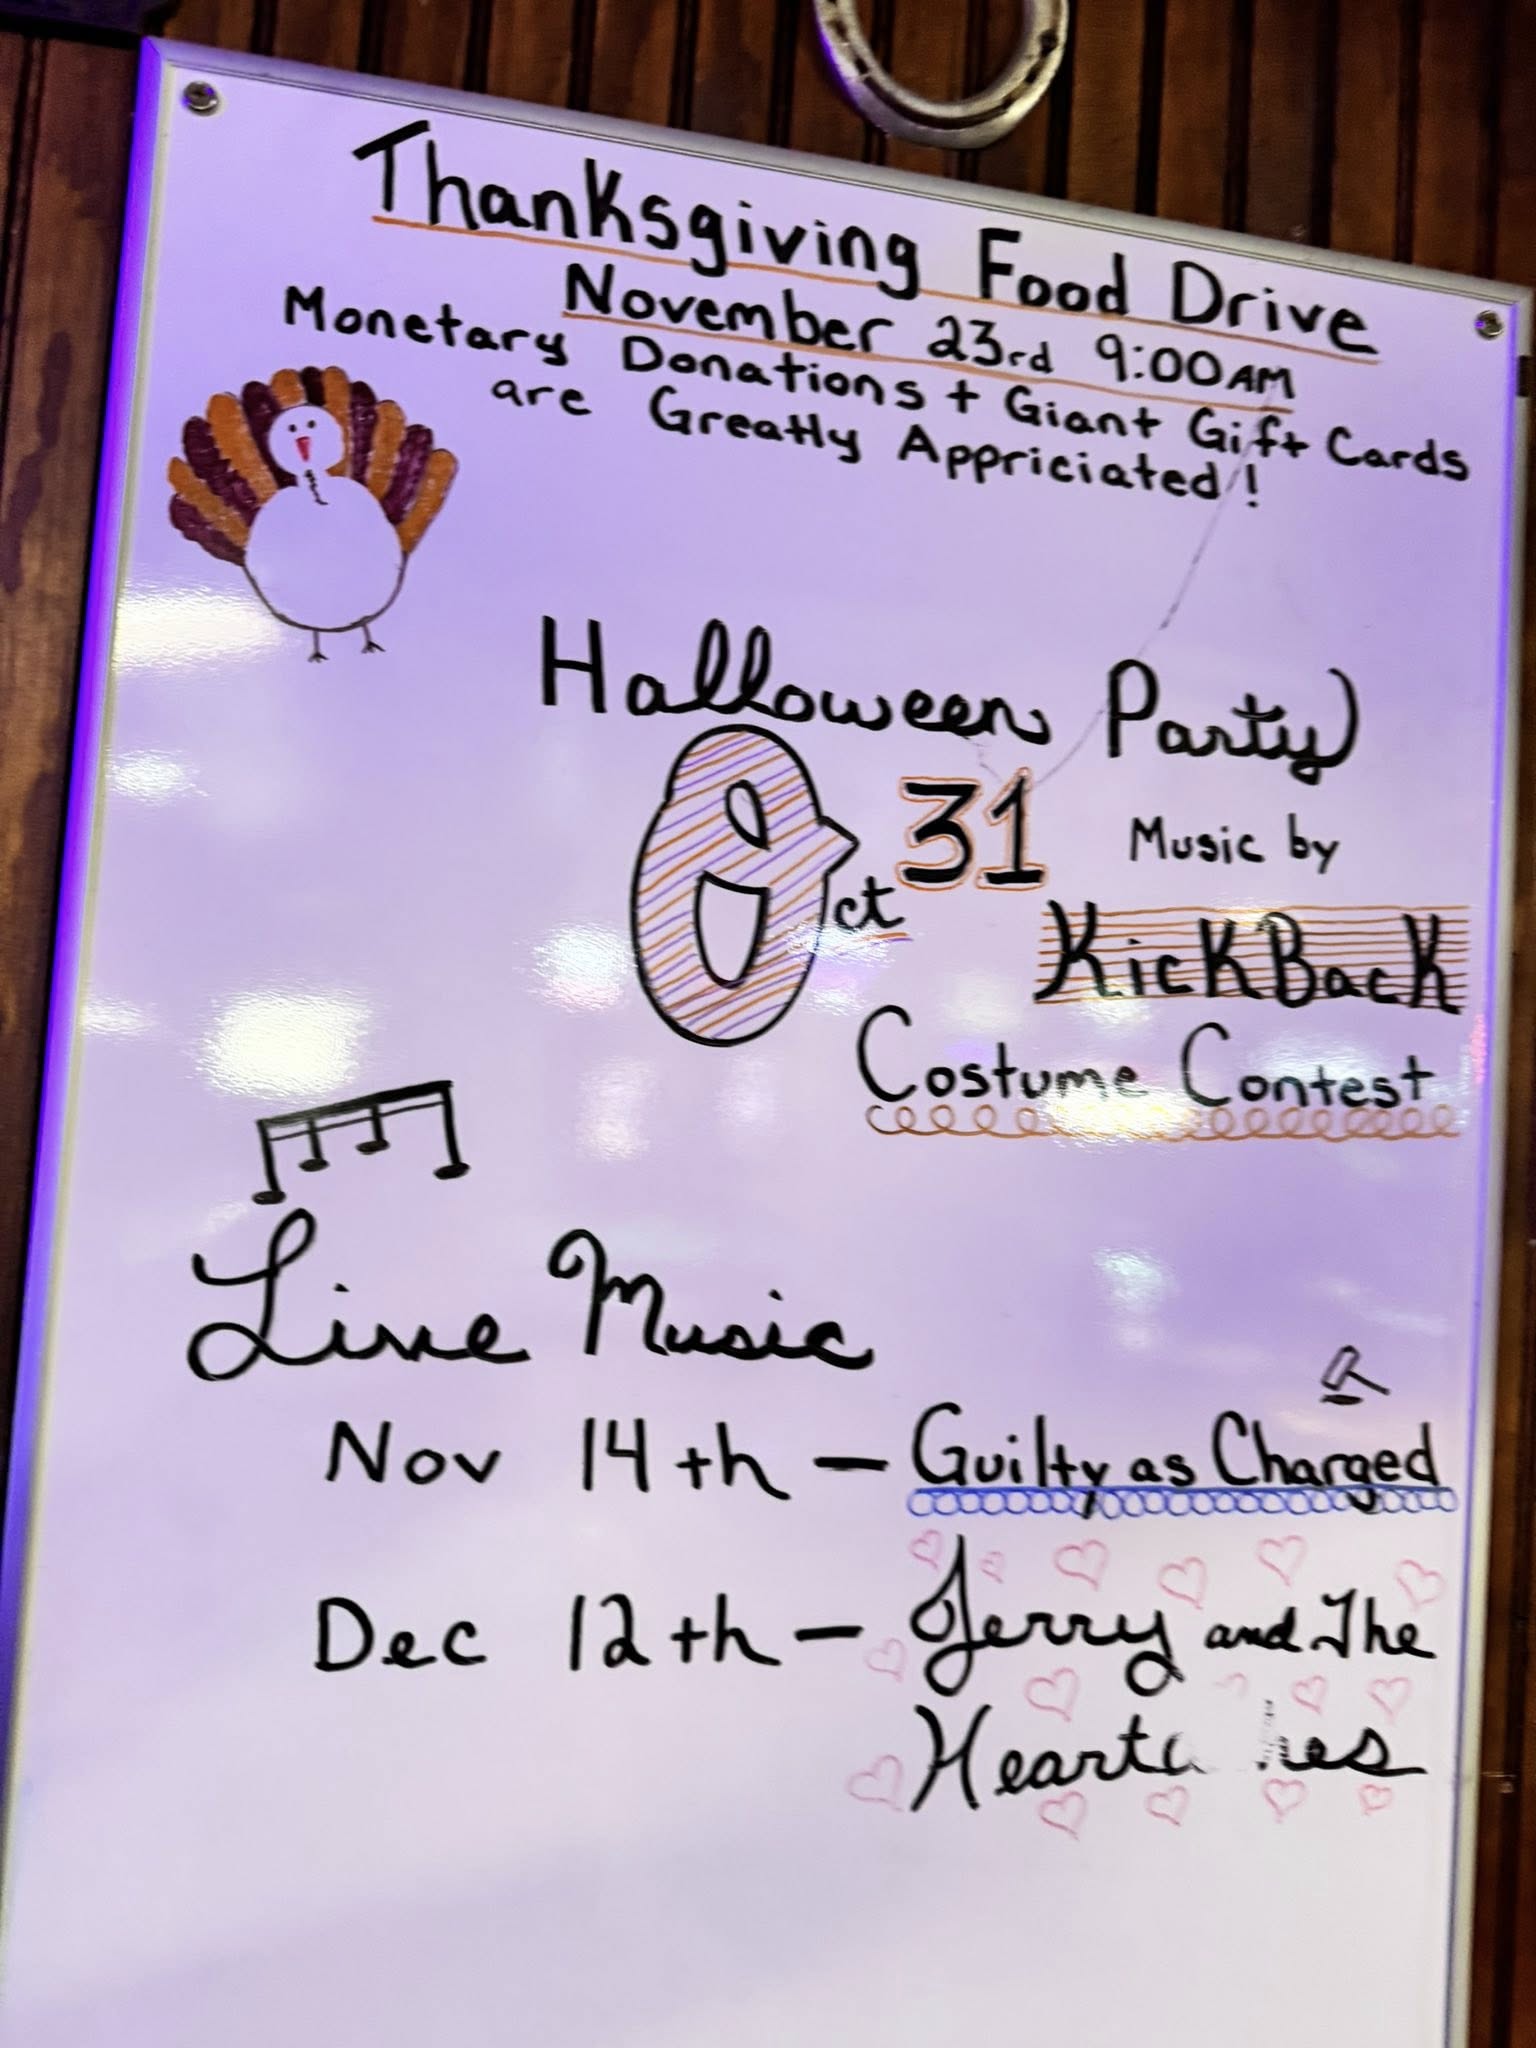 Thanksgiving Food Drive
November 23rd 9:00AM
Monetary Donations + Giant Gift Cards
are Greatly Appriciated!
Halloween Party
Oct 31
Music by
KickBack
Costume Contest
Live Music
Nov 14th — Guilty as Charged
Dec 12th — Jerry and The